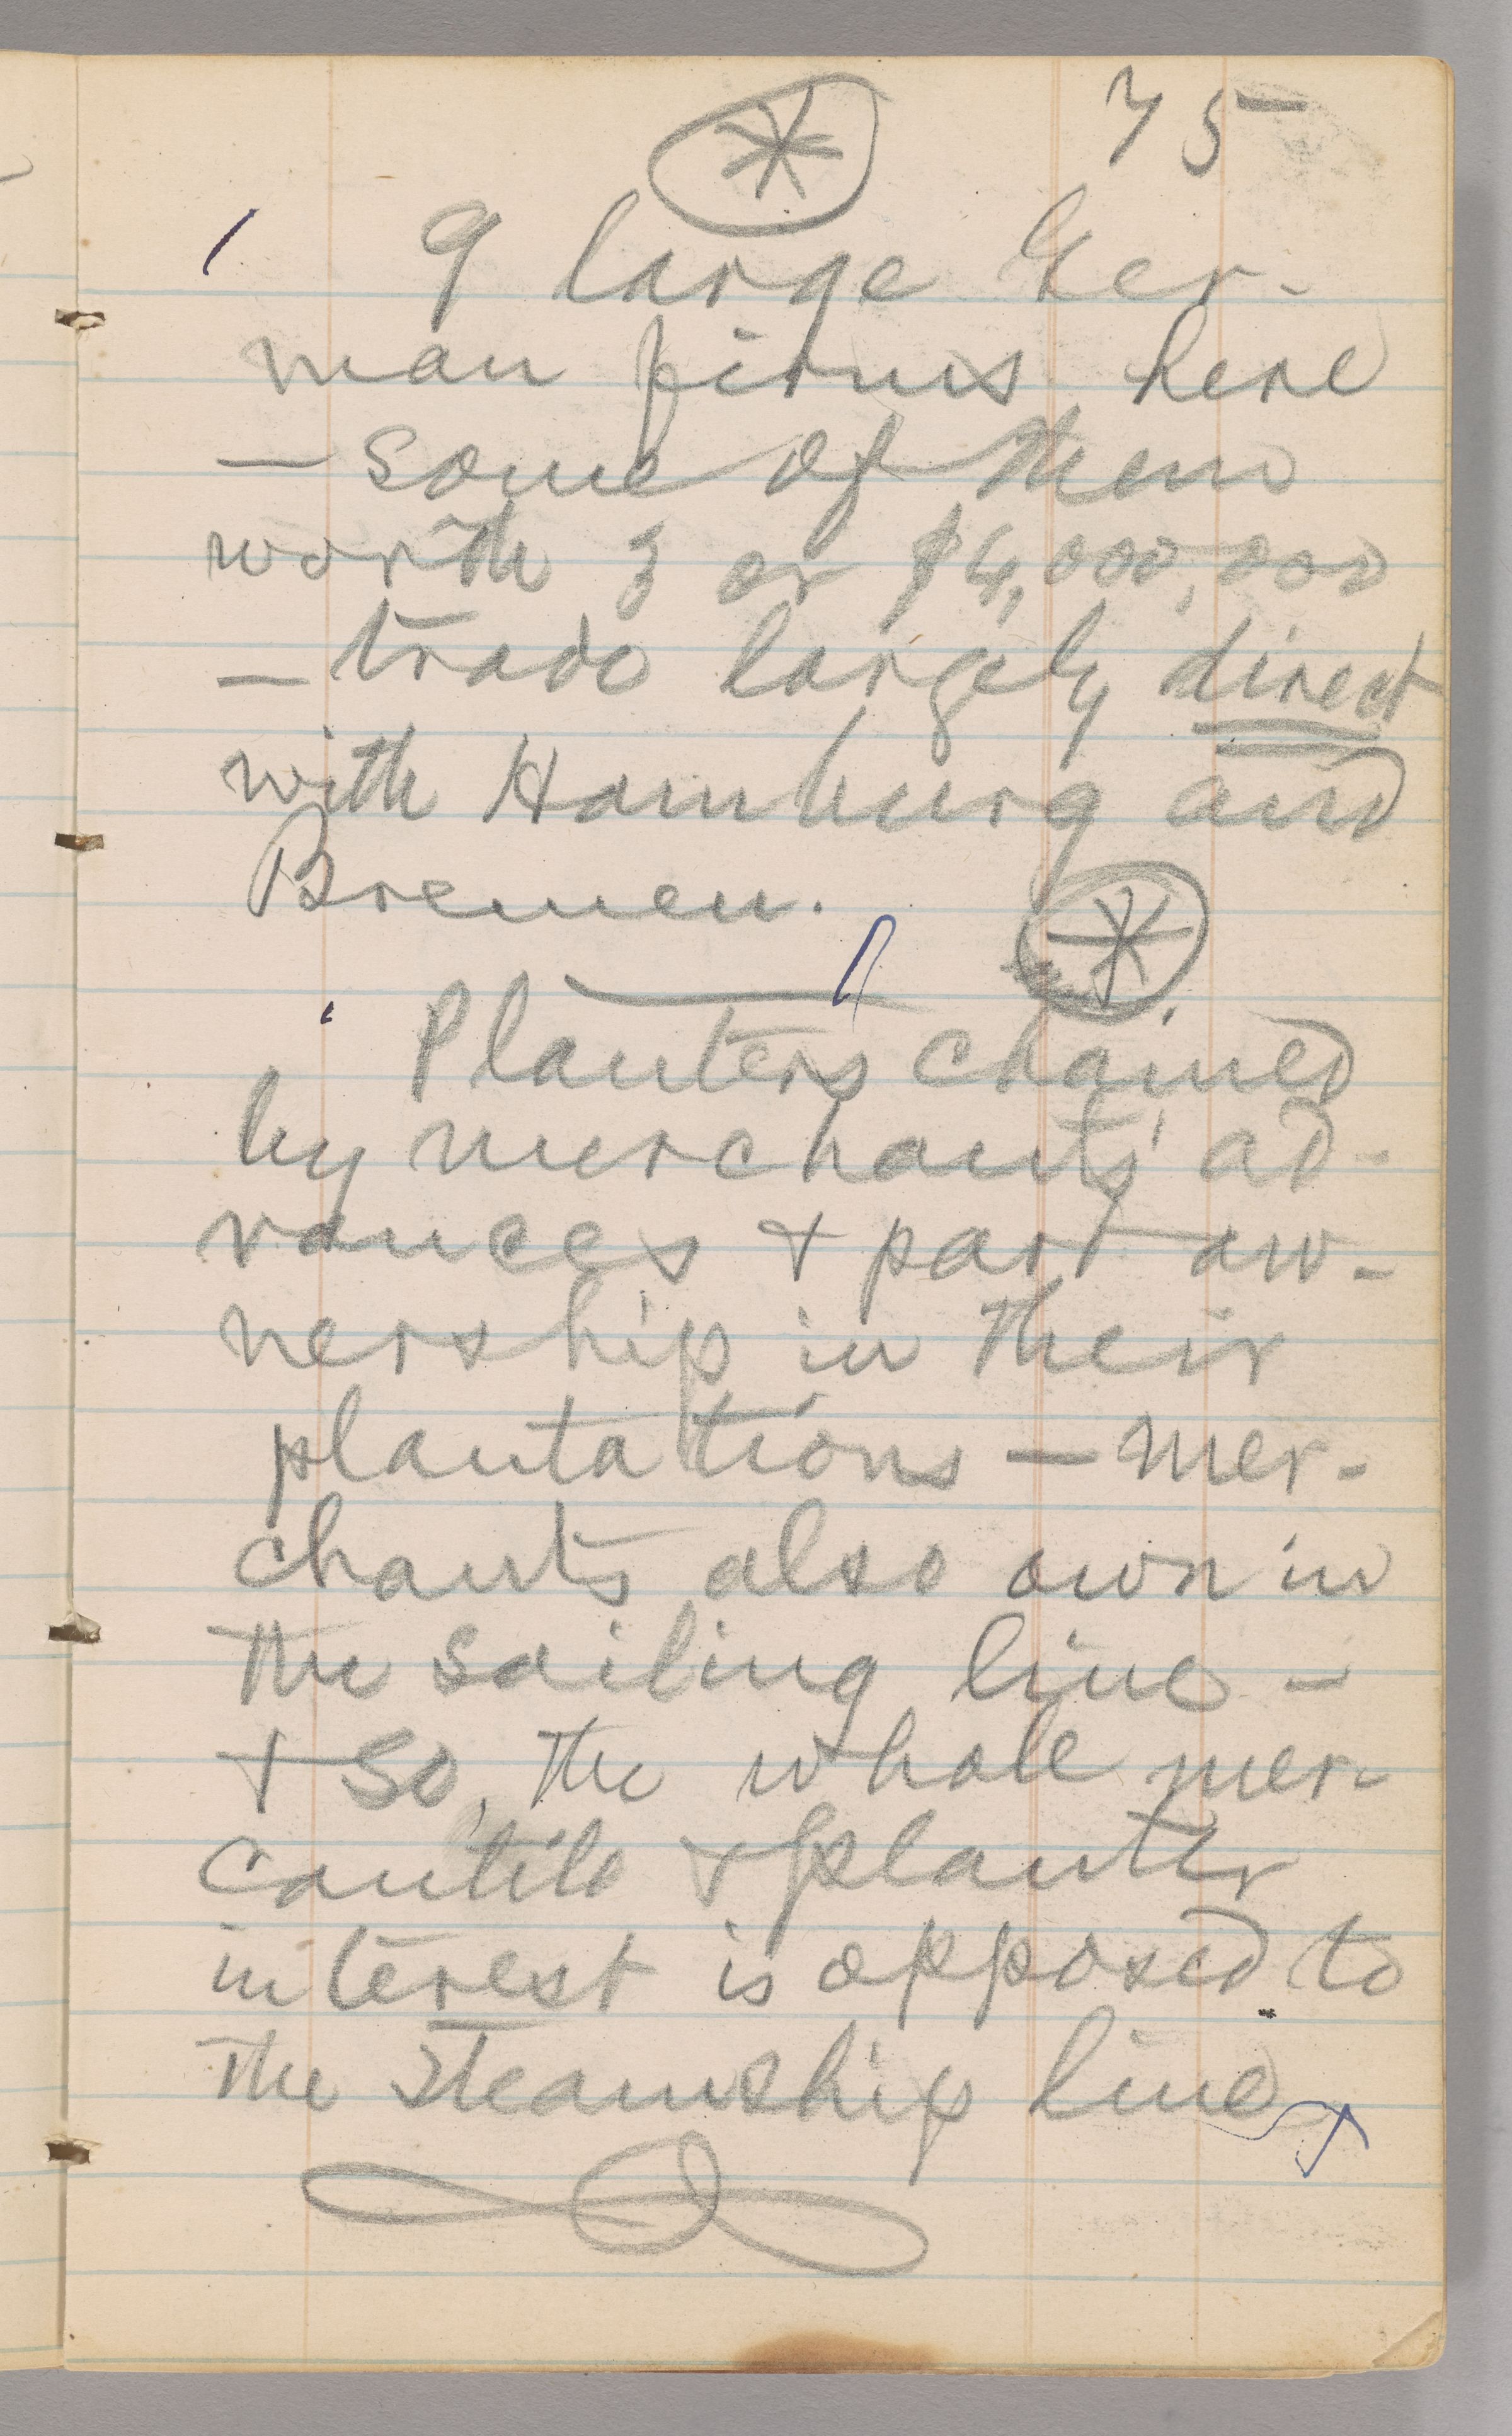 75
9 large Ger-
man firms here
— some of them
worth 3 or $4,000,000
— trade largely direct
with Hamburg and
Bremen.
Planters chained
by merchants' ad-
vances & part ow-
nership in their
plantations — mer-
chants also own in
the sailing line —
& so, the whole mer-
cantile & planter
interest is opposed to
the steamship line